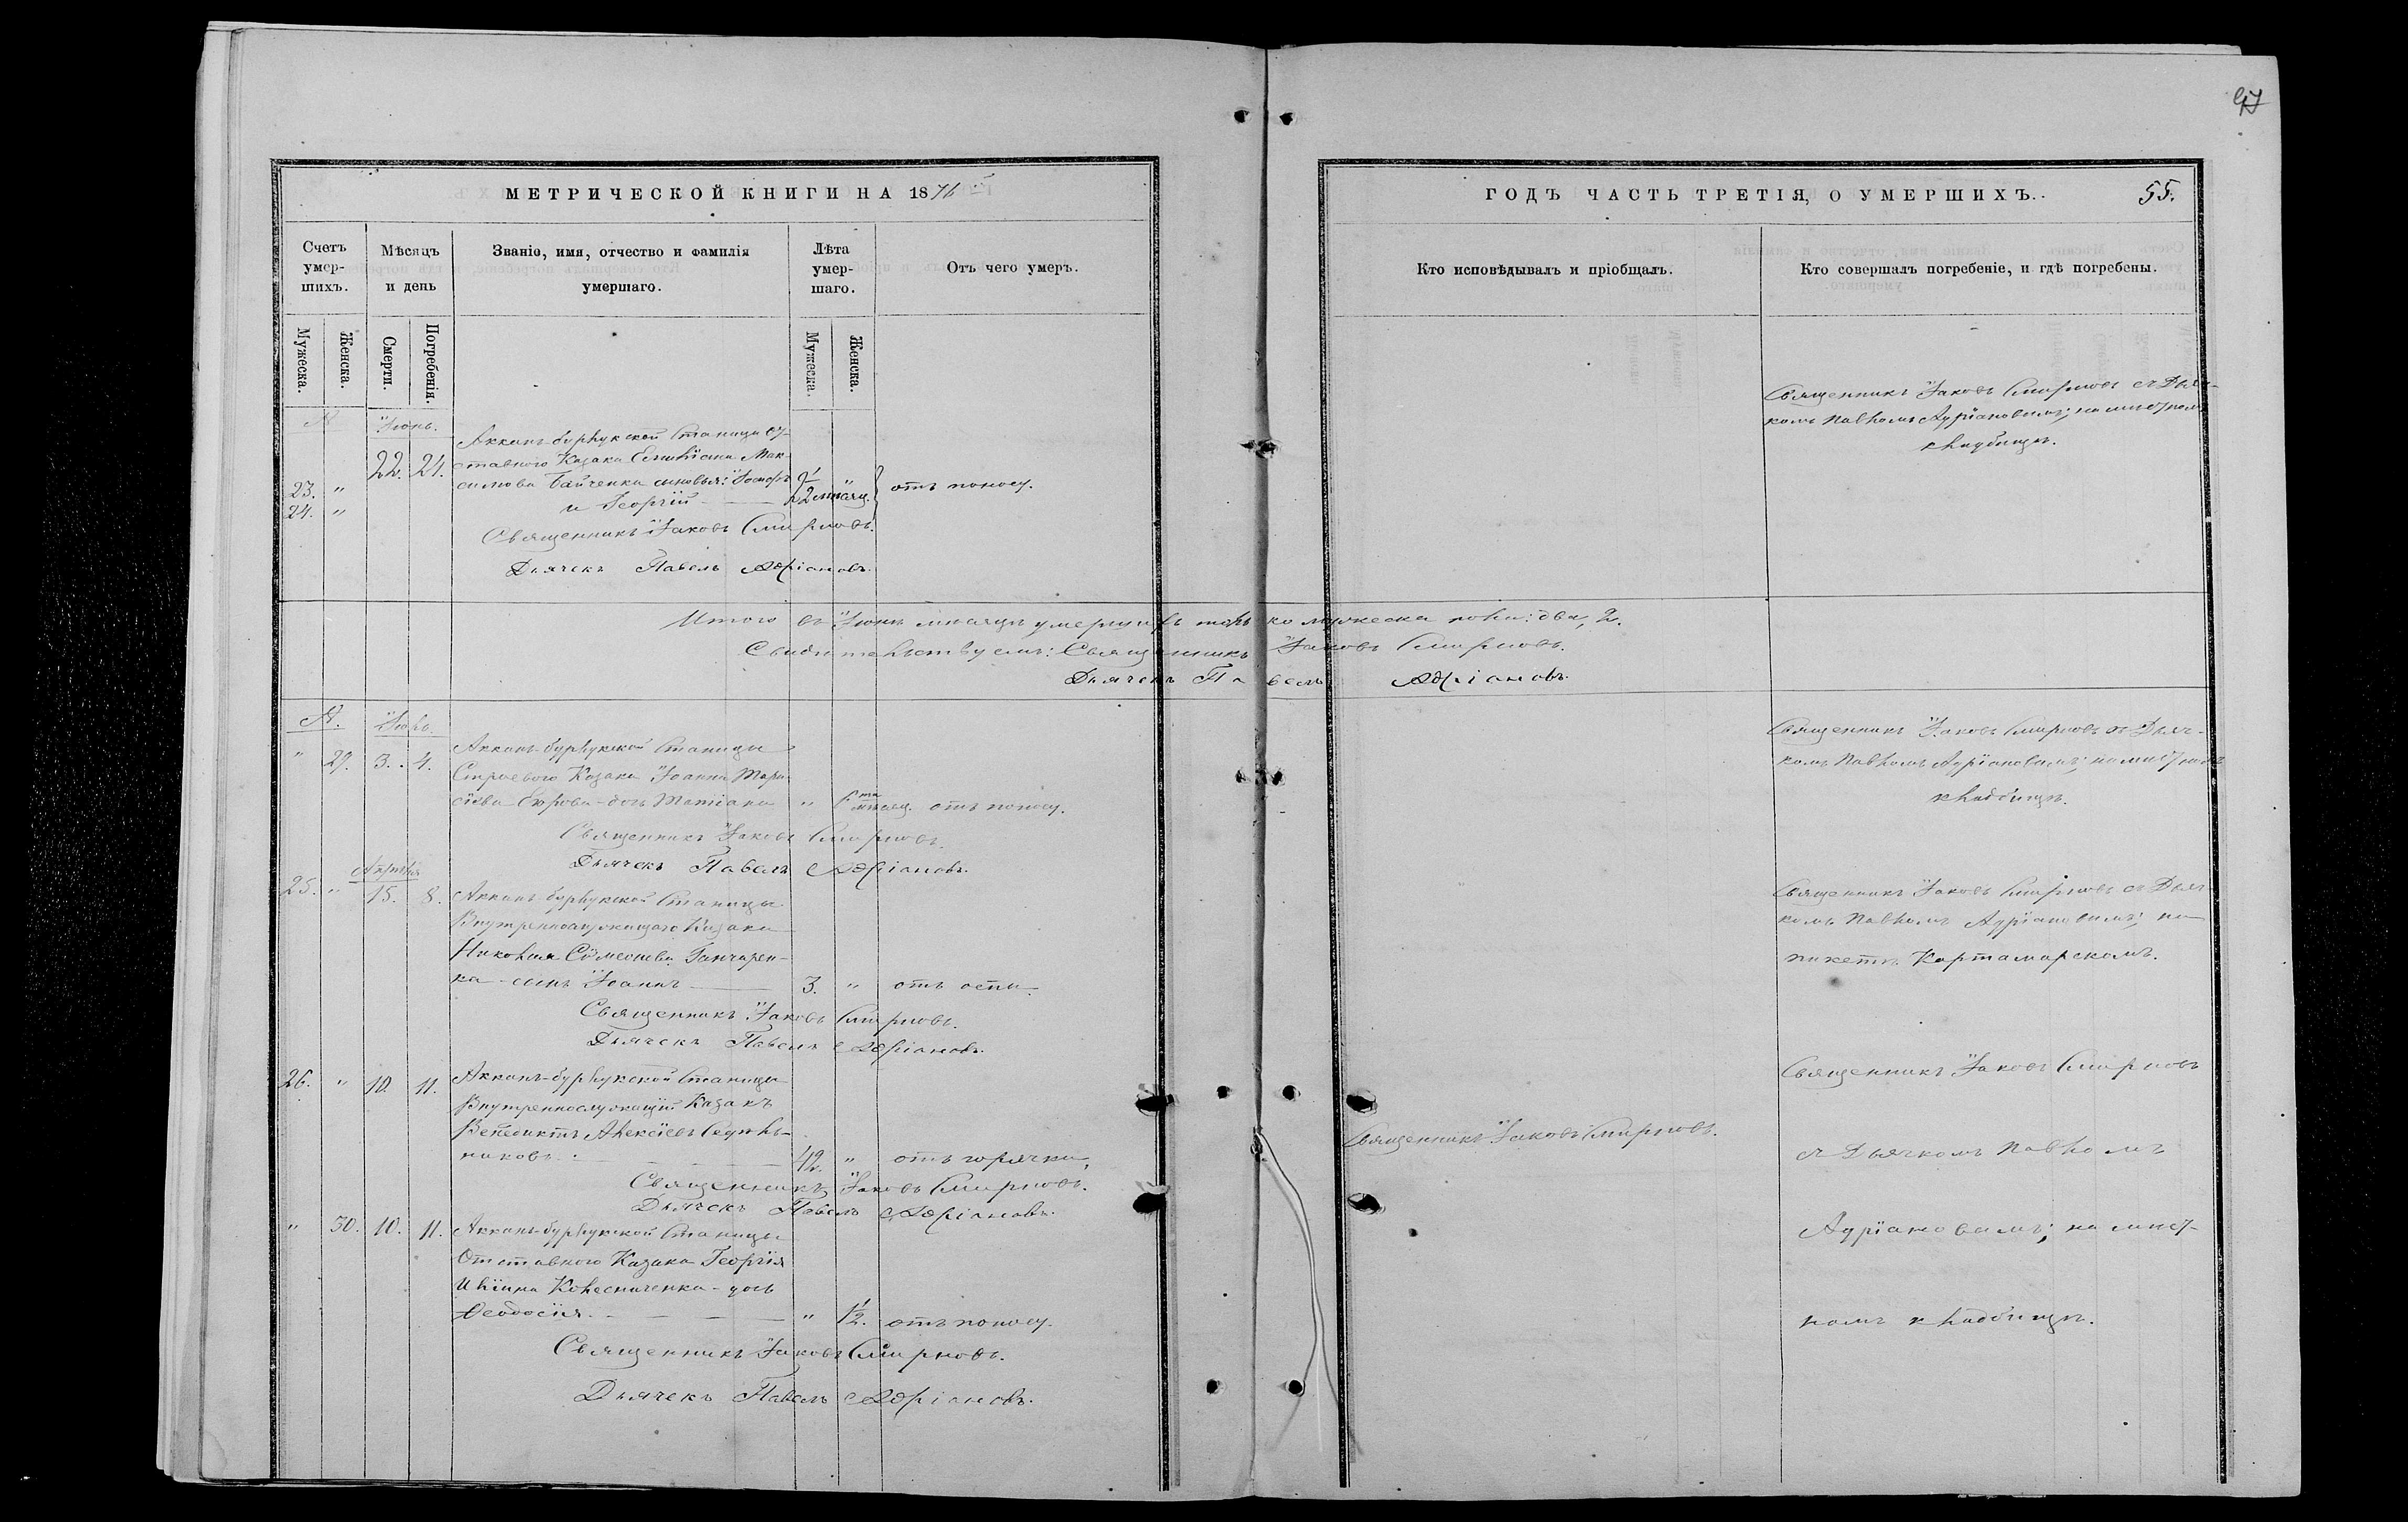 97
МЕТРИЧЕСКОЙ КНИГИ НА 1876
ГОДЪ ЧАСТЬ ТРЕТІЯ, О УМЕРШИХЪ.
55.
Счетъ умер-
шихъ.
Мѣсяцъ
и день
Званіе, имя, отчество и фамилія
умершаго.
Лѣта
умер-
шаго.
Отъ чего умеръ.
Кто исповѣдывалъ и пріобщалъ.
Кто совершалъ погребеніе, и гдѣ погребены.
Мужеска.
Женска.
Смерти.
Погребенія.
Мужеска.
Женска.
Іюнь.
23. "
24. "
22. 24.
Акканъ-бурлукской Станицы От-
ставного Казака Емиліана Мак-
симова Байченка сыновья: Іосифъ
и Георгій
2 мѣсяц.
отъ поносу.
Священникъ Іаковъ Смирновъ съ Дьяч-
комъ Павломъ Адріановымъ; на мѣстномъ
кладбищѣ.
Священникъ Іаковъ Смирновъ.
Дьячекъ Павелъ Адріановъ.
Итого въ Іюнѣ мѣсяцѣ умершихъ только мужеска пола: два, 2.
Свидѣтельствуемъ: Священникъ Іаковъ Смирновъ.
Дьячекъ Павелъ Адріановъ.
Іюль.
" 29. 3. 4.
Акканъ-бурлукской Станицы
Строеваго Казака Іоанна
дочь Татіана " 6 мѣсяц. отъ поносу.
Священникъ Іаковъ Смирновъ съ Дьяч-
комъ Павломъ Адріановымъ; на мѣстномъ
кладбищѣ.
Священникъ Іаковъ Смирновъ.
Дьячекъ Павелъ Адріановъ.
Апрѣля
25. " 15. 8.
Акканъ-бурлукской Станицы
Внутреннослужащаго Казака
Николая Симеонова Ганчарен-
ка - сынъ Іоаннъ 3. " отъ оспы.
Священникъ Іаковъ Смирновъ съ Дьяч-
комъ Павломъ Адріановымъ; на
пикетѣ Картамарскомъ.
Священникъ Іаковъ Смирновъ.
Дьячекъ Павелъ Адріановъ.
26. " 10. 11.
Акканъ-бурлукской Станицы
Внутреннослужащій Казакъ
Венедиктъ Алексіевъ Седѣль-
никовъ. 42. " отъ горячки.
Священникъ Іаковъ Смирновъ.
Священникъ Іаковъ Смирновъ
съ Дьячкомъ Павломъ
Адріановымъ; на мѣст-
номъ кладбищѣ.
Священникъ Іаковъ Смирновъ.
Дьячекъ Павелъ Адріановъ.
" 30. 10. 11.
Акканъ-бурлукской Станицы
Отставного Казака Георгія
Иліина Колесниченка - дочь
Ѳеодосія. " 1/2. отъ поносу.
Священникъ Іаковъ Смирновъ.
Дьячекъ Павелъ Адріановъ.